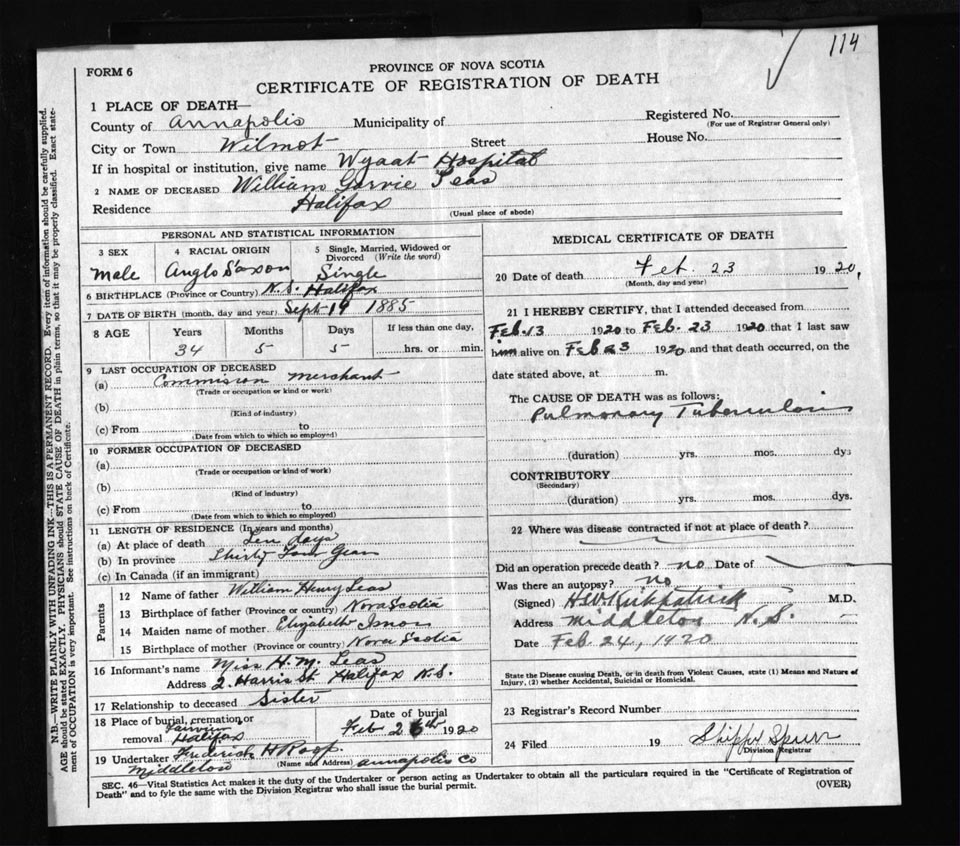 114
FORM 6
PROVINCE OF NOVA SCOTIA
CERTIFICATE OF REGISTRATION OF DEATH
1 PLACE OF DEATH—
County of Annapolis Municipality of
Registered No.
(For use of Registrar General only)
City or Town Wilmot Street House No.
If in hospital or institution, give name Wyaat Hospital
2 NAME OF DECEASED William Garvie Leas
Residence Halifax
(Usual place of abode)
PERSONAL AND STATISTICAL INFORMATION
3 SEX 4 RACIAL ORIGIN 5 Single, Married, Widowed or Divorced (Write the word)
Male Anglo Saxon Single
6 BIRTHPLACE (Province or Country) N.S. Halifax
7 DATE OF BIRTH (month, day and year) Sept 19 1885
8 AGE Years Months Days If less than one day,
34 5 5 hrs. or min.
9 LAST OCCUPATION OF DECEASED
(a) Commission merchant
(Trade or occupation or kind or work)
(b)
(Kind of industry)
(c) From to
(Date from which to which so employed)
10 FORMER OCCUPATION OF DECEASED
(a)
(Trade or occupation or kind of work)
(b)
(Kind of industry)
(c) From to
(Date from which to which so employed)
11 LENGTH OF RESIDENCE (In years and months)
(a) At place of death Ten days
(b) In province Thirty Four Years
(c) In Canada (if an immigrant)
Parents
12 Name of father William Henry Leas
13 Birthplace of father (Province or country) Nova Scotia
14 Maiden name of mother Elizabeth
15 Birthplace of mother (Province or country) Nova Scotia
16 Informant's name Miss H. M. Leas
Address 2 Harris St Halifax N.S.
17 Relationship to deceased Sister
18 Place of burial, cremation or removal Fairview Halifax
Date of burial
Feb 26th 1920
19 Undertaker Frederick H Roop
(Name and Address)
Middleton Annapolis Co
MEDICAL CERTIFICATE OF DEATH
20 Date of death Feb. 23 1920,
(Month, day and year)
21 I HEREBY CERTIFY, that I attended deceased from
Feb. 13 1920 to Feb. 23 1920 that I last saw
him alive on Feb 23 1920 and that death occurred, on the
date stated above, at m.
The CAUSE OF DEATH was as follows:
Pulmonary Tuberculosis
(duration) yrs. mos. dys
CONTRIBUTORY
(Secondary)
(duration) yrs. mos. dys.
22 Where was disease contracted if not at place of death?
Did an operation precede death? no Date of
Was there an autopsy? no
(Signed) H.W. Kirkpatrick M.D.
Address Middleton N.S.
Date Feb 24, 1920
State the Disease causing Death, or in death from Violent Causes, state (1) Means and Nature of
Injury, (2) whether Accidental, Suicidal or Homicidal.
23 Registrar's Record Number
24 Filed 19 Shippy Spurr
Division Registrar
SEC. 46—Vital Statistics Act makes it the duty of the Undertaker or person acting as Undertaker to obtain all the particulars required in the "Certificate of Registration of
Death" and to fyle the same with the Division Registrar who shall issue the burial permit.
(OVER)
N.B.—WRITE PLAINLY WITH UNFADING INK—THIS IS A PERMANENT RECORD. Every item of information should be carefully supplied.
AGE should be stated EXACTLY. PHYSICIANS should STATE CAUSE OF DEATH in plain terms, so that it may be properly classified. Exact state-
ment of OCCUPATION is very important. See instructions on back of Certificate.